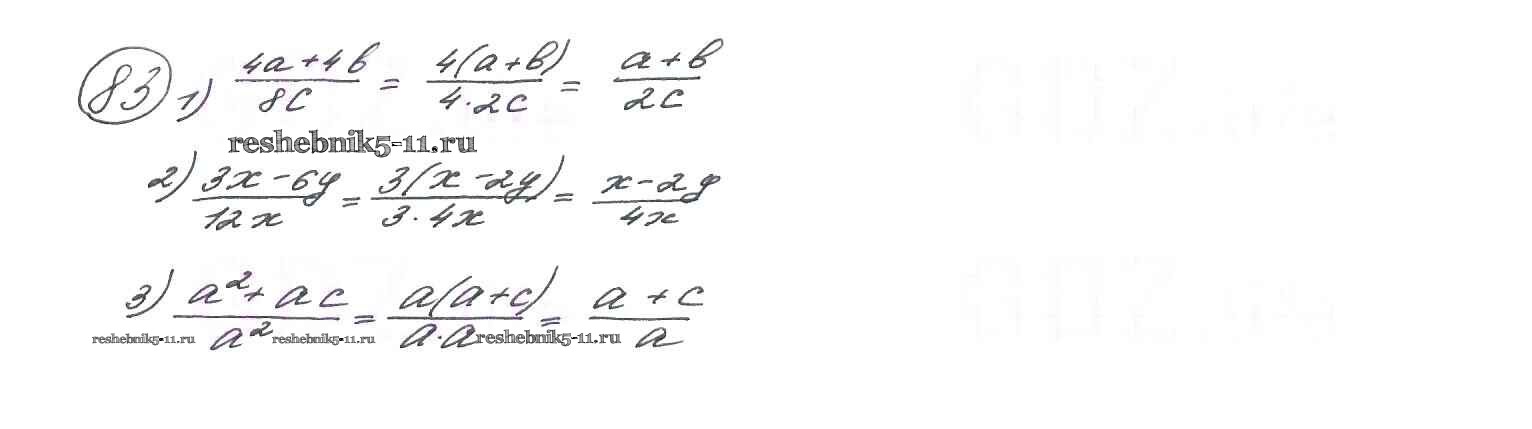 83 1) (4a+4b)/(8c) = (4(a+b))/(4·2c) = (a+b)/(2c)
reshebnik5-11.ru
2) (3x-6y)/(12x) = (3(x-2y))/(3·4x) = (x-2y)/(4x)
3) (a²+ac)/(a²) = (a(a+c))/(a·a) = (a+c)/(a)
reshebnik5-11.ru reshebnik5-11.ru reshebnik5-11.ru